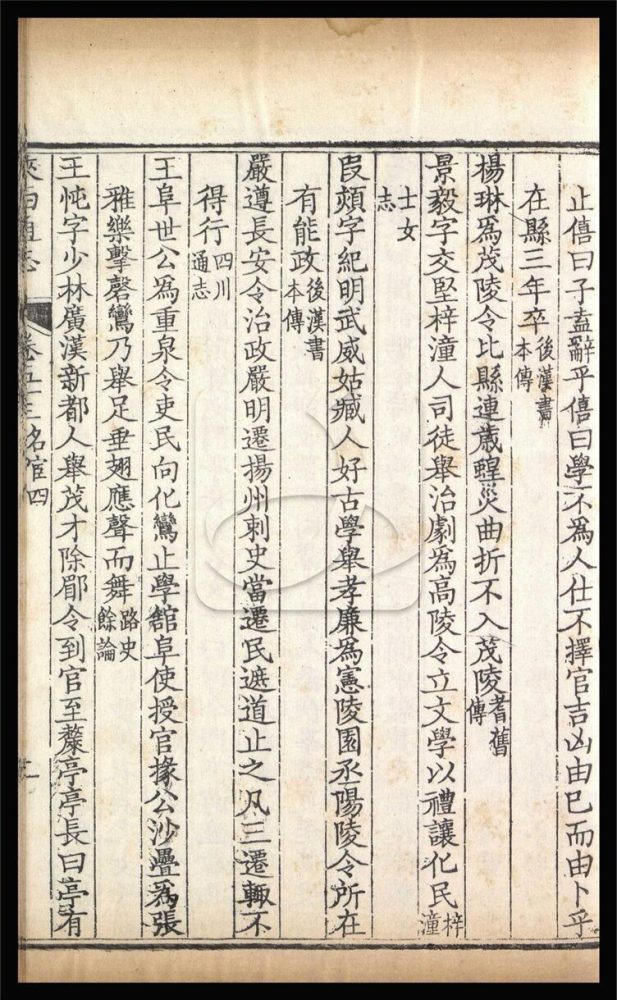 止僖曰子盍辭乎僖曰學不為人仕不擇官吉凶由已而由卜乎
在縣三年卒後漢書本傳
楊琳為茂陵令比縣連歲蝗災曲折不入茂陵耆舊傳
景毅字文堅梓潼人司徒舉治劇為高陵令立文學以禮讓化民梓潼
士女志
段熲字紀明武威姑臧人好古學舉孝廉為憲陵園丞陽陵令所在
有能政後漢書本傳
嚴遵長安令治政嚴明遷揚州刺史當遷民遮道止之凡三遷輙不
得行四川通志
王阜世公為重泉令吏民向化鸞止學舘阜使授官掾公沙疊為張
雅樂擊磬鸞乃舉足垂翅應聲而舞路史餘論
王忳字少林廣漢新都人舉茂才除郿令到官至斄亭亭長曰亭有
陜西通志 卷五十三 名宦四